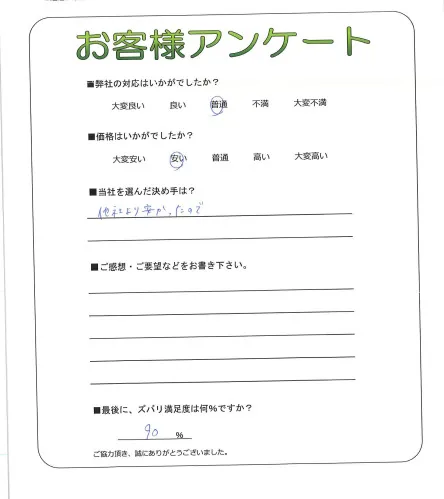 お客様アンケート
■弊社の対応はいかがでしたか？
大変良い 良い 普通 不満 大変不満
■価格はいかがでしたか？
大変安い 安い 普通 高い 大変高い
■当社を選んだ決め手は？
他社より安かったので
■ご感想・ご要望などをお書き下さい。
■最後に、ズバリ満足度は何％ですか？
90 ％
ご協力頂き、誠にありがとうございました。